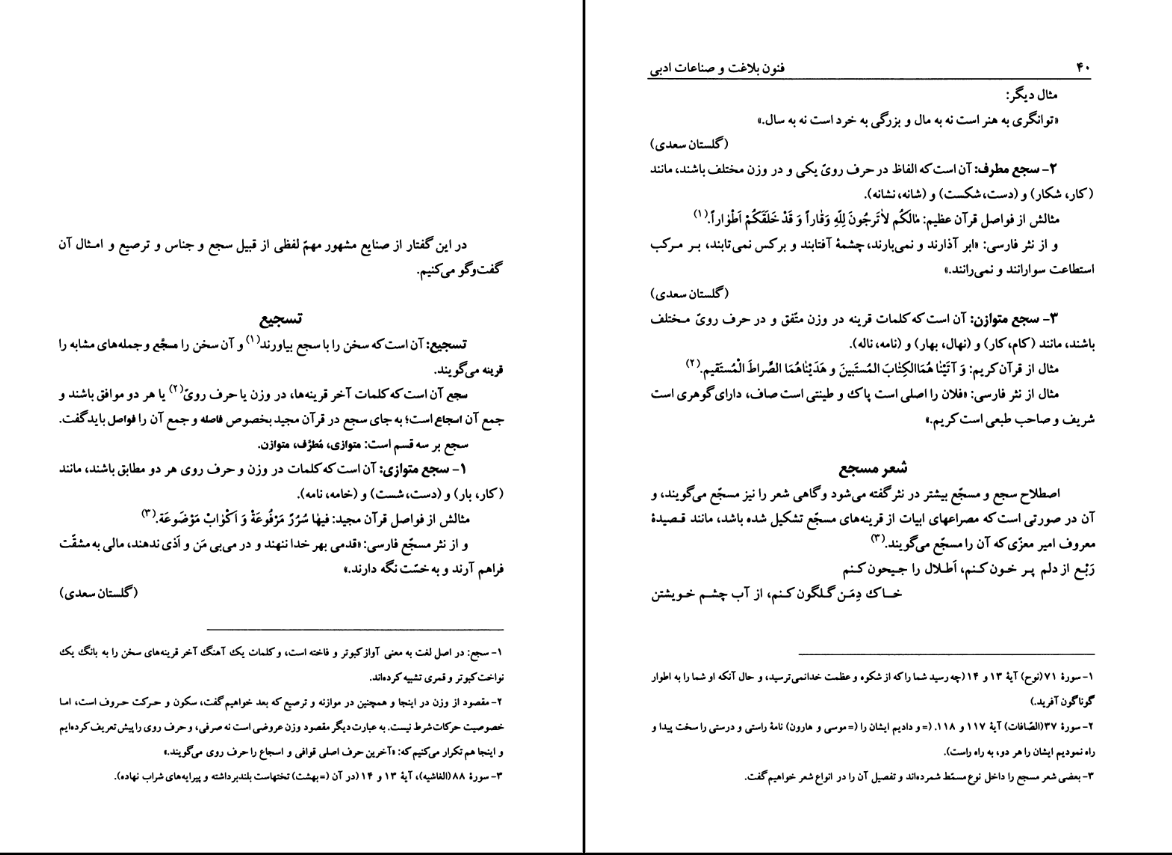 در این گفتار از صنایع مشهور مهمّ لفظی از قبیل سجع و جناس و ترصیع و امـثال آن
گفت‌وگو می‌کنیم.
تسجیع
تسجیع: آن است که سخن را با سجع بیاورند(۱) و آن سخن را مسجّع و جمله‌های مشابه را
قرینه می‌گویند.
سجع آن است که کلمات آخر قرینه‌ها، در وزن یا حرف رویّ(۲) یا هر دو موافق باشند و
جمع آن اسجاع است؛ به جای سجع در قرآن مجید بخصوص فاصله و جمع آن را فواصل باید گفت.
سجع بر سه قسم است: متوازی، مُطرَّف، متوازن.
۱- سجع متوازی: آن است که کلمات در وزن و حرف روی هر دو مطابق باشند، مانند
(کار، بار) و (دست، شست) و (خامه، نامه).
مثالش از فواصل قرآن مجید: فیهٰا سُرُرٌ مَرْفُوعَةٌ وَ اَکْوٰابٌ مَوْضُوعَة.(۳)
و از نثر مسجّع فارسی: «قدمی بهر خدا ننهند و درمی بی مَن و اَذی ندهند، مالی به مشقّت
فراهم آرند و به خسّت نگه دارند.»
(گلستان سعدی)
۱- سجع: در اصل لغت به معنی آواز کبوتر و فاخته است، و کلمات یک آهنگ آخر قرینه‌های سخن را به بانگ یک
نواخت کبوتر و قمری تشبیه کرده‌اند.
۲- مقصود از وزن در اینجا و همچنین در موازنه و ترصیع که بعد خواهیم گفت، سکون و حـرکت حـروف است، امـا
خصوصیت حرکات شرط نیست. به عبارت دیگر مقصود وزن عروضی است نه صرفی، و حرف روی را پیش تعریف کرده‌ایم
و اینجا هم تکرار می‌کنیم که: «آخرین حرف اصلی قوافی و اسجاع را حرف روی می‌گویند.»
۳- سورهٔ ۸۸ (الغاشیه)، آیهٔ ۱۳ و ۱۴ (در آن (= بهشت) تختهاست بلند برداشته و پیرایه‌های شراب نهاده).
۴۰ فنون بلاغت و صناعات ادبی
مثال دیگر:
«توانگری به هنر است نه به مال و بزرگی به خرد است نه به سال.»
(گلستان سعدی)
۲- سجع مطرف: آن است که الفاظ در حرف رویّ یکی و در وزن مختلف باشند، مانند
(کار، شکار) و (دست، شکست) و (شانه، نشانه).
مثالش از فواصل قرآن عظیم: مٰالَکُم لاٰتَرجُونَ لِلّهِ وَقٰاراً وَ قَدْ خَلَقَکُمْ اَطْوٰاراً.(۱)
و از نثر فارسی: «ابر آذارند و نمی‌بارند، چشمهٔ آفتابند و برکس نمی‌تابند، بـر مـرکب
استطاعت سوارانند و نمی‌رانند.»
(گلستان سعدی)
۳- سجع متوازن: آن است که کلمات قرینه در وزن متّفق و در حرف رویّ مـختلف
باشند، مانند (کام، کار) و (نهال، بهار) و (نامه، ناله).
مثال از قرآن کریم: وَ آتَیْنٰا هُمَاالکِتٰابَ المُسْتَبینَ و هَدَیْنٰاهُمَا الصِّراطَ الْمُسْتَقیم.(۲)
مثال از نثر فارسی: «فلان را اصلی است پاک و طینتی است صاف، دارای گوهری است
شریف و صاحب طبعی است کریم.»
شعر مسجع
اصطلاح سجع و مسجّع بیشتر در نثر گفته می‌شود و گاهی شعر را نیز مسجّع می‌گویند، و
آن در صورتی است که مصراعهای ابیات از قرینه‌های مسجّع تشکیل شده باشد، مانند قـصیدهٔ
معروف امیر معزّی که آن را مسجّع می‌گویند.(۳)
رَبْـع از دلم پـر خـون کـنم، اَطـلال را جـیحون کـنم
خـاک دِمَـن گـلگون کـنم، از آب چشـم خـویشتن
۱- سورهٔ ۷۱ (نوح) آیهٔ ۱۳ و ۱۴ (چه رسید شما را که از شکوه و عظمت خدا نمی‌ترسید، و حال آنکه او شما را به اطوار
گوناگون آفرید.)
۲- سورهٔ ۳۷ (الصّافات) آیهٔ ۱۱۷ و ۱۱۸. (= و دادیم ایشان را (= موسی و هارون) نامهٔ راستی و درستی را سخت پیدا و
راه نمودیم ایشان را هر دو، به راه راست).
۳- بعضی شعر مسجع را داخل نوع مسمّط شمرده‌اند و تفصیل آن را در انواع شعر خواهیم گفت.